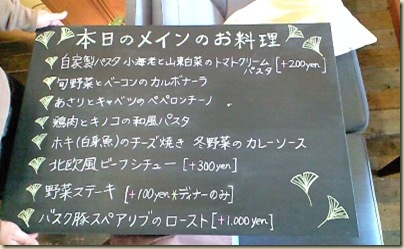 本日のメインのお料理
自家製パスタ 小海老と山東白菜のトマトクリーム
パスタ [+200yen]
旬野菜とベーコンのカルボナーラ
あさりとキャベツのペペロンチーノ
鶏肉とキノコの和風パスタ
ホキ(白身魚)のチーズ焼き 冬野菜のカレーソース
北欧風ビーフシチュー [+300yen]
野菜ステーキ [+100yen*ディナーのみ]
バスク豚スペアリブのロースト[+1.000yen]